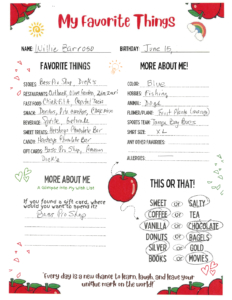 My Favorite Things
NAME: Willie Barroso BIRTHDAY: June 16,
FAVORITE THINGS
STORES: Bass Pro Shop, Dick's
RESTAURANTS: Outback,
FAST FOOD: Chick Fil A,
SNACK:
BEVERAGE: Sprite, Gatorade
SWEET TREATS:
CANDY:
GIFT CARDS: Bass Pro Shop, Amazon
Dick's
MORE ABOUT ME!
COLOR: Blue
HOBBIES: Fishing
ANIMAL: Dogs
FLOWER/PLANT:
SPORTS TEAM: Tampa Bay Bucs
SHIRT SIZE: XL
ANY OTHER FAVORITES:
ALLERGIES:
MORE ABOUT ME
A Glimpse into My Wish List
If you found a gift card, where
would you want to spend it?
Bass Pro Shop
THIS OR THAT!
SWEET or SALTY
COFFEE or TEA
VANILLA or CHOCOLATE
DONUTS or BAGELS
SILVER or GOLD
BOOKS or MOVIES
"Every day is a new chance to learn, laugh, and leave your
unique mark on the world!"